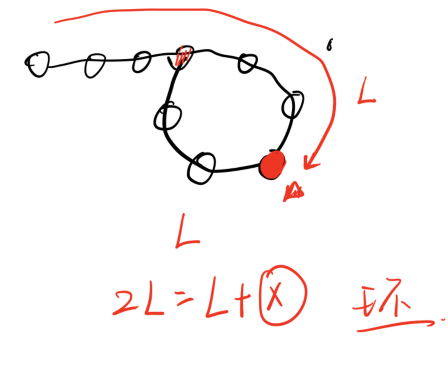 L
L
2L = L + X 环